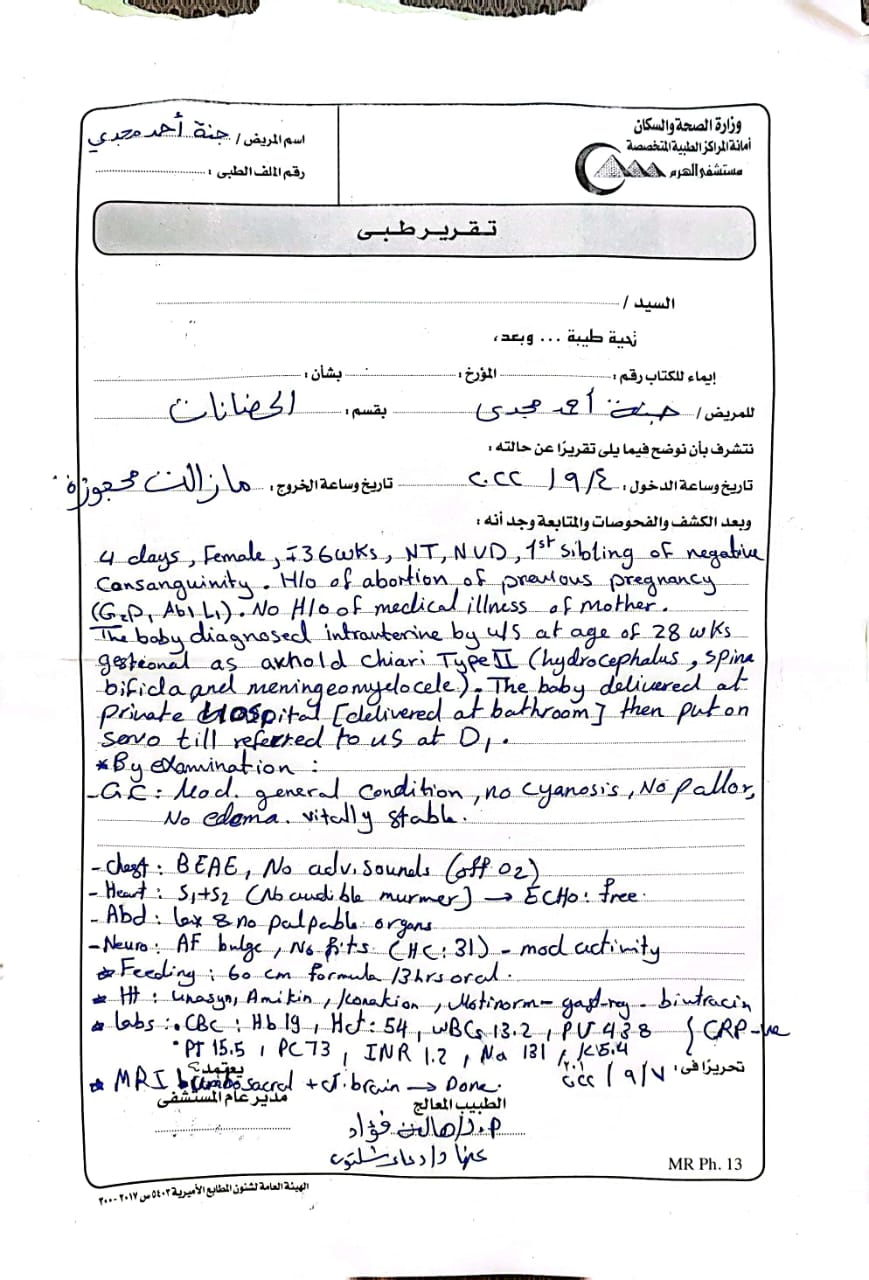 وزارة الصحة والسكان
أمانة المراكز الطبية المتخصصة
مستشفى الهرم
اسم المريض / جنة أحمد مجدي
رقم الملف الطبى :
تقرير طبى
السيد /
تحية طيبة ... وبعد،
إيماء للكتاب رقم : المؤرخ : بشأن :
للمريض / جنة أحمد مجدى بقسم : الحضانات
نتشرف بأن نوضح فيما يلى تقريرًا عن حالته :
تاريخ وساعة الدخول : ٢٠٢٢ / ٩ / ٤ تاريخ وساعة الخروج : مازالت محجوزة
وبعد الكشف والفحوصات والمتابعة وجد أنه :
4 days, Female, 36 wks, NT, NVD, 1st sibling of negative
Consanguinity. H/o of abortion of previous pregnancy
(G2P1 Ab1 L1). No H/o of medical illness of mother.
The baby diagnosed intrauterine by u/s at age of 28 wks
gestional as arnold chiari Type II (hydrocephalus, spina
bifida and meningeomyelocele). The baby delivered at
private Hospital [delivered at bathroom] then put on
servo till referred to us at D1.
* By examination :
- G.C : Mod. general condition, no cyanosis, No pallor,
No edema. vitally stable.
- Chest : BEAE, No adv. sounds (off O2)
- Heart : S1+S2 (No audible murmer) → ECHO : free.
- Abd : lax & no palpable organs
- Neuro : AF bulge, No fits (HC : 31) - mod activity
* Feeding : 60 cm formula /3hrs oral.
* ttt : unasyn, Amikin, Konakion, Motinorm - - biutracin
* Labs : . CBC : Hb 19, Hct : 54, WBCs 13.2, 438 } CRP -ve
• PT 15.5, PC 73, INR 1.2, Na 131, K 5.4
تحريرًا فى : ٢٠٢٢ / ٩ / ٧
* MRI lumbosacral + ct. brain → Done.
يعتمد؛
مدير عام المستشفى
الطبيب المعالج
د/هالة فؤاد
عنها د/دعاء شلتوت
MR Ph. 13
الهيئة العامة لشئون المطابع الأميرية ٥٤٠٣ س ٢٠١٧ - ٢٠٠٠